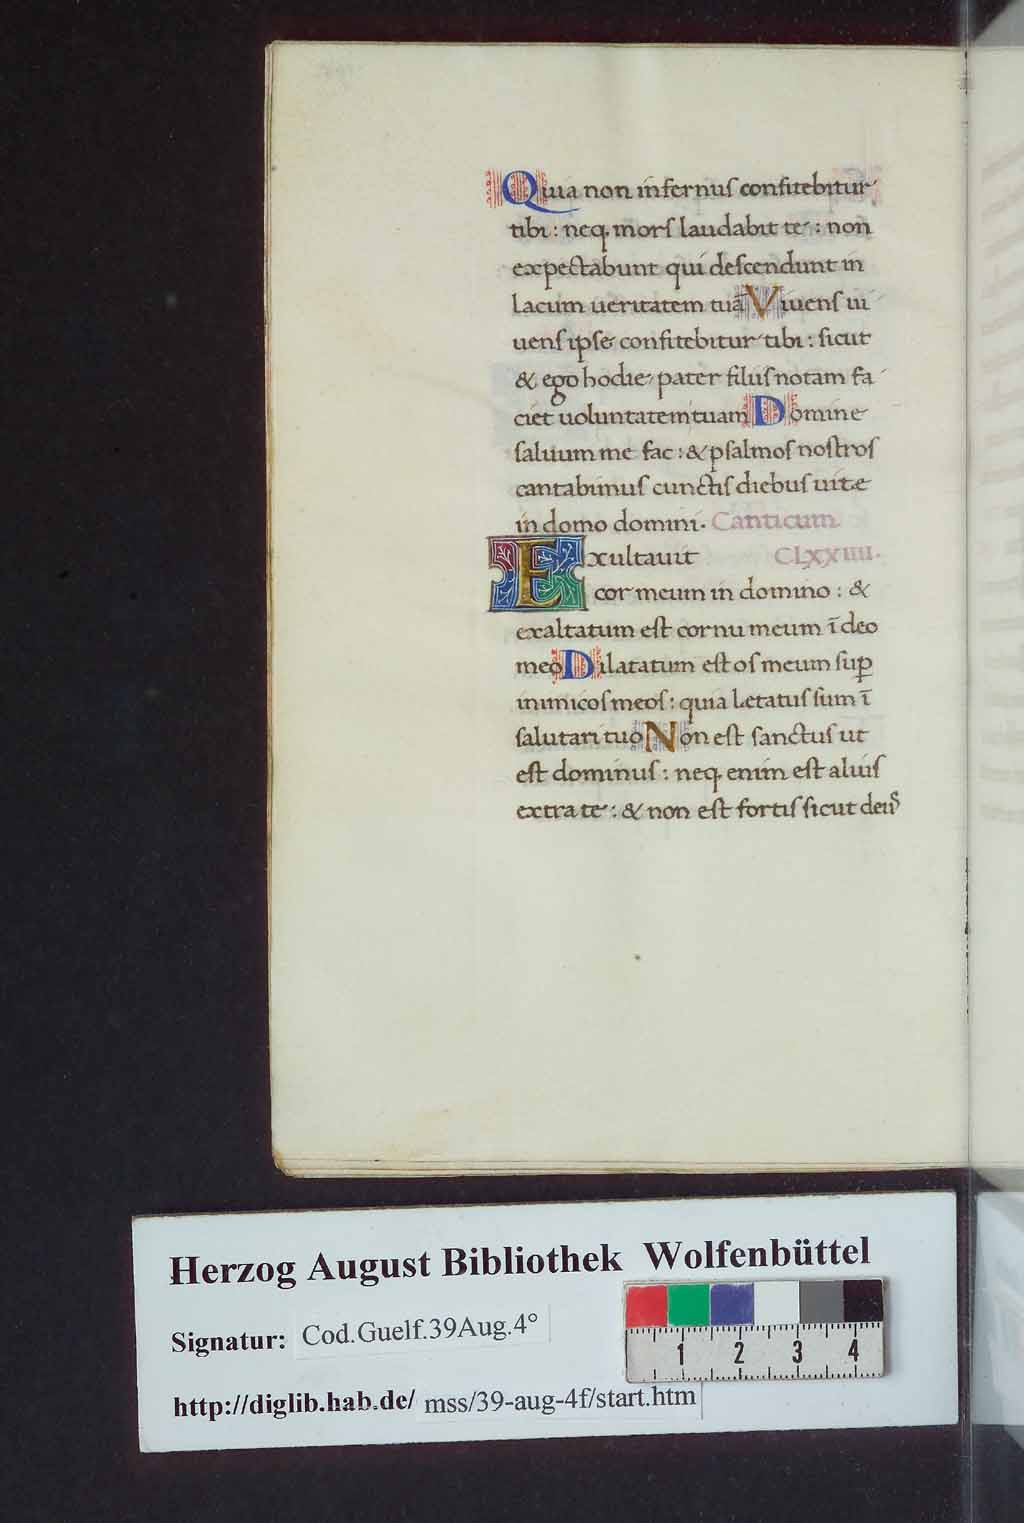 Quia non infernus confitebitur
tibi : neq. mors laudabit te : non
expectabunt qui descendunt in
lacum ueritatem tuā Viuens ui
uens ipse confitebitur tibi : sicut
& ego hodie pater filiis notam fa
ciet uoluntatem tuam Domine
saluum me fac : & psalmos nostros
cantabimus cunctis diebus uitæ
in domo domini. Canticum
Exultauit CLXXIIII.
cor meum in domino : &
exaltatum est cornu meum ī deo
meo Dilatatum est os meum sup̄
inimicos meos : quia lætatus sum ī
salutari tuo Non est sanctus ut
est dominus : neq. enim est alius
extra te : & non est fortis sicut deus
Herzog August Bibliothek Wolfenbüttel
Signatur: Cod.Guelf.39Aug.4°
http://diglib.hab.de/ mss/39-aug-4f/start.htm
1 2 3 4